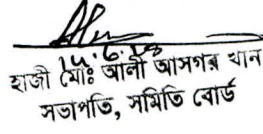 ১৮.৬.১৪
হাজী মোঃ আলী আসগর খান
সভাপতি, সমিতি বোর্ড